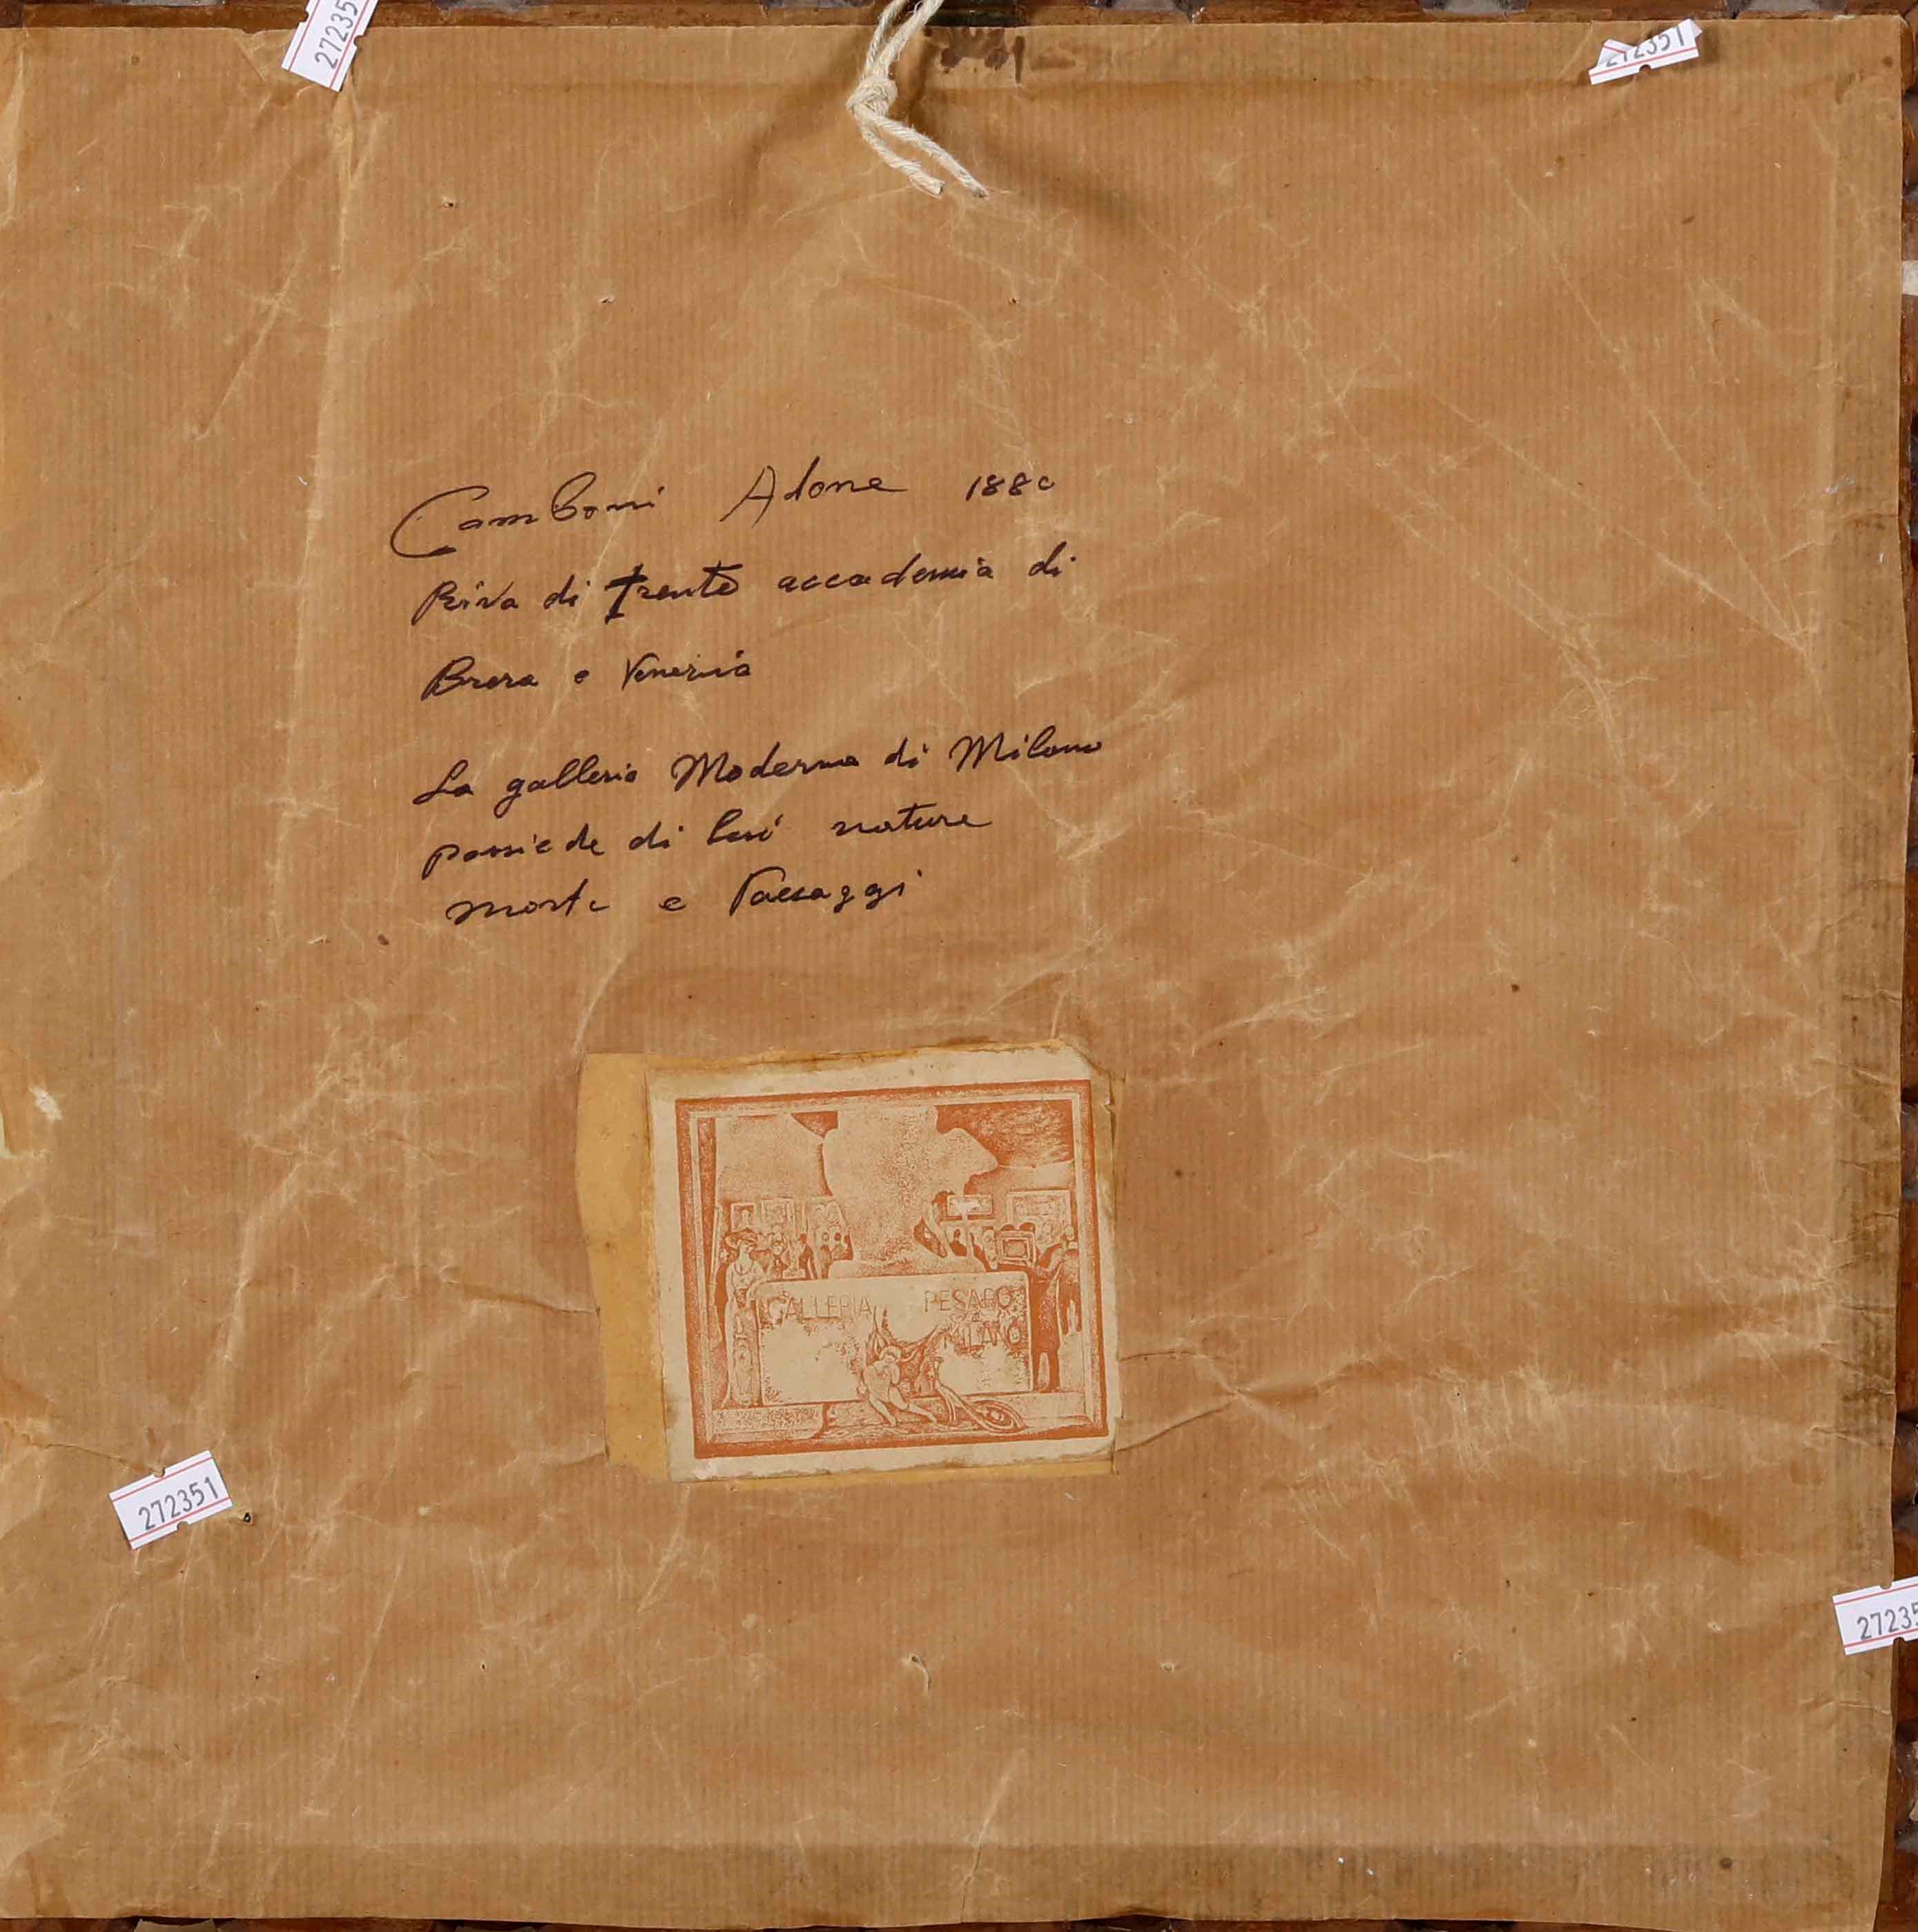 27235
272351
Camboni Adone 1880
Riva di trento accademia di
Brera e Venezia
La galleria Moderna di Milano
possiede di lui nature
morte e Paesaggi
GALLERIA PESARO
MILANO
272351
27235